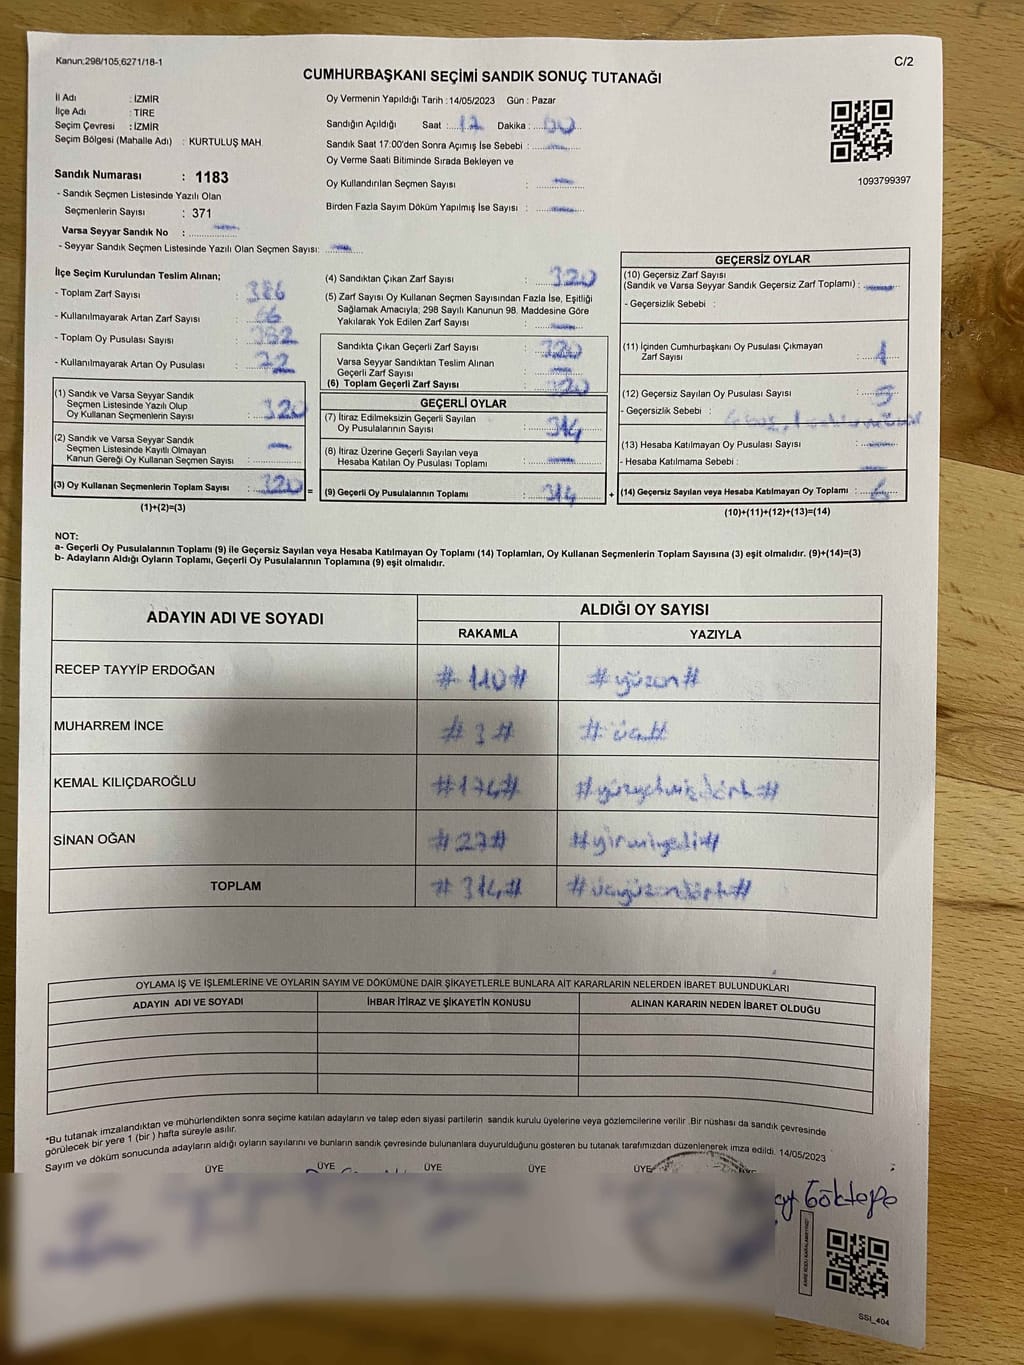 Kanun;298/105;6271/18-1
C/2
CUMHURBAŞKANI SEÇİMİ SANDIK SONUÇ TUTANAĞI
İl Adı : İZMİR
İlçe Adı : TİRE
Seçim Çevresi : İZMİR
Seçim Bölgesi (Mahalle Adı) : KURTULUŞ MAH.
Sandık Numarası : 1183
- Sandık Seçmen Listesinde Yazılı Olan
Seçmenlerin Sayısı : 371
Varsa Seyyar Sandık No :
- Seyyar Sandık Seçmen Listesinde Yazılı Olan Seçmen Sayısı:
Oy Vermenin Yapıldığı Tarih : 14/05/2023 Gün : Pazar
Sandığın Açıldığı Saat : 17 Dakika : 00
Sandık Saat 17:00'den Sonra Açımış İse Sebebi :
Oy Verme Saati Bitiminde Sırada Bekleyen ve
Oy Kullandırılan Seçmen Sayısı :
Birden Fazla Sayım Döküm Yapılmış İse Sayısı :
1093799397
İlçe Seçim Kurulundan Teslim Alınan;
- Toplam Zarf Sayısı : 386
- Kullanılmayarak Artan Zarf Sayısı : 66
- Toplam Oy Pusulası Sayısı :
- Kullanılmayarak Artan Oy Pusulası : 72
(1) Sandık ve Varsa Seyyar Sandık
Seçmen Listesinde Yazılı Olup
Oy Kullanan Seçmenlerin Sayısı : 320
(2) Sandık ve Varsa Seyyar Sandık
Seçmen Listesinde Kayıtlı Olmayan
Kanun Gereği Oy Kullanan Seçmen Sayısı :
(3) Oy Kullanan Seçmenlerin Toplam Sayısı : 320 =
(1)+(2)=(3)
(4) Sandıktan Çıkan Zarf Sayısı : 320
(5) Zarf Sayısı Oy Kullanan Seçmen Sayısından Fazla İse, Eşitliği
Sağlamak Amacıyla; 298 Sayılı Kanunun 98. Maddesine Göre
Yakılarak Yok Edilen Zarf Sayısı :
Sandıkta Çıkan Geçerli Zarf Sayısı : 320
Varsa Seyyar Sandıktan Teslim Alınan
Geçerli Zarf Sayısı :
(6) Toplam Geçerli Zarf Sayısı : 320
GEÇERLİ OYLAR
(7) İtiraz Edilmeksizin Geçerli Sayılan
Oy Pusulalarının Sayısı : 314
(8) İtiraz Üzerine Geçerli Sayılan veya
Hesaba Katılan Oy Pusulası Toplamı :
(9) Geçerli Oy Pusulalarının Toplamı : 314 +
GEÇERSİZ OYLAR
(10) Geçersiz Zarf Sayısı
(Sandık ve Varsa Seyyar Sandık Geçersiz Zarf Toplamı) :
- Geçersizlik Sebebi :
(11) İçinden Cumhurbaşkanı Oy Pusulası Çıkmayan
Zarf Sayısı : 1
(12) Geçersiz Sayılan Oy Pusulası Sayısı : 5
- Geçersizlik Sebebi :
(13) Hesaba Katılmayan Oy Pusulası Sayısı :
- Hesaba Katılmama Sebebi :
(14) Geçersiz Sayılan veya Hesaba Katılmayan Oy Toplamı : 6
(10)+(11)+(12)+(13)=(14)
NOT:
a- Geçerli Oy Pusulalarının Toplamı (9) ile Geçersiz Sayılan veya Hesaba Katılmayan Oy Toplamı (14) Toplamları, Oy Kullanan Seçmenlerin Toplam Sayısına (3) eşit olmalıdır. (9)+(14)=(3)
b- Adayların Aldığı Oyların Toplamı, Geçerli Oy Pusulalarının Toplamına (9) eşit olmalıdır.
ADAYIN ADI VE SOYADI
ALDIĞI OY SAYISI
RAKAMLA YAZIYLA
RECEP TAYYİP ERDOĞAN # 110 # # yüzon #
MUHARREM İNCE # 3 # # üç #
KEMAL KILIÇDAROĞLU # 174 # # yüzyetmişdört #
SİNAN OĞAN # 27 # # yirmiyedi #
TOPLAM # 314 # # üçyüzondört #
OYLAMA İŞ VE İŞLEMLERİNE VE OYLARIN SAYIM VE DÖKÜMÜNE DAİR ŞİKAYETLERLE BUNLARA AİT KARARLARIN NELERDEN İBARET BULUNDUKLARI
ADAYIN ADI VE SOYADI İHBAR İTİRAZ VE ŞİKAYETİN KONUSU ALINAN KARARIN NEDEN İBARET OLDUĞU
*Bu tutanak imzalandıktan ve mühürlendikten sonra seçime katılan adayların ve talep eden siyasi partilerin sandık kurulu üyelerine veya gözlemcilerine verilir .Bir nüshası da sandık çevresinde
görülecek bir yere 1 (bir ) hafta süreyle asılır.
Sayım ve döküm sonucunda adayların aldığı oyların sayılarını ve bunların sandık çevresinde bulunanlara duyurulduğunu gösteren bu tutanak tarafımızdan düzenlenerek imza edildi. 14/05/2023
ÜYE ÜYE ÜYE ÜYE ÜYE
Göktepe
SSI_404